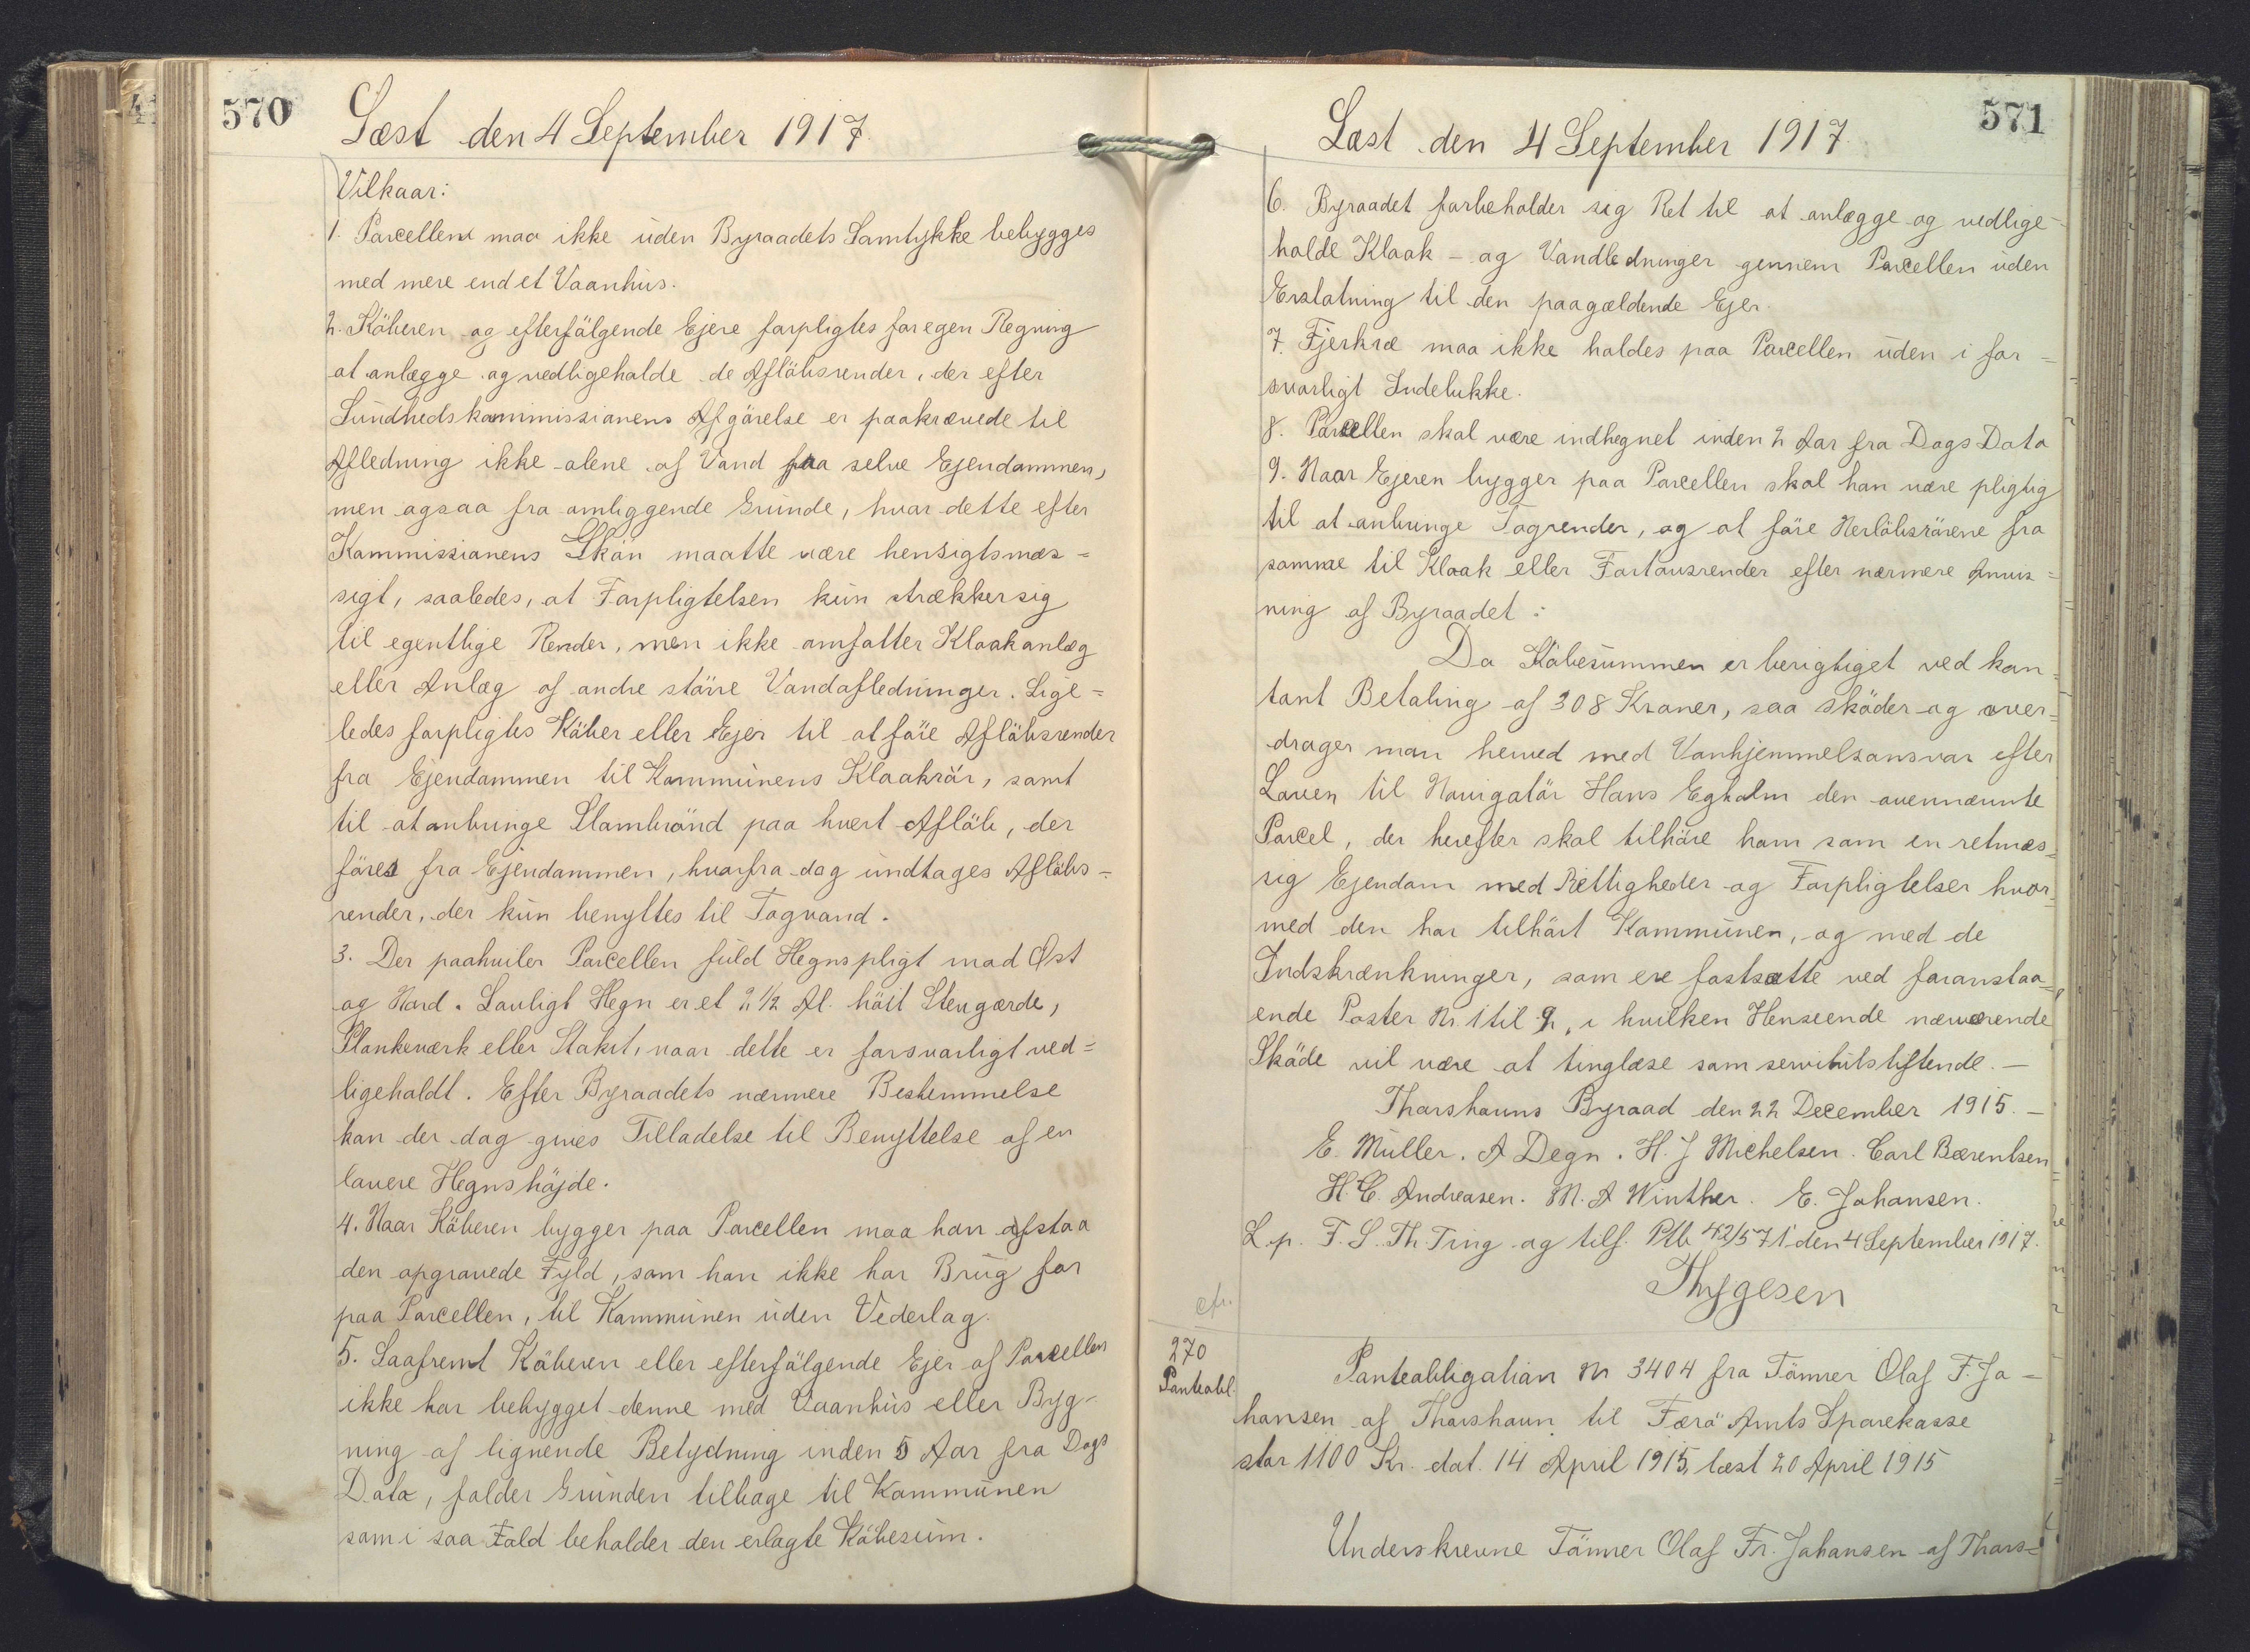 570
Læst den 4 September 1917.
Vilkaar:
1. Parcellen maa ikke uden Byraadets Samtykke bebygges
med mere end et Vaanhus.
2. Köberen og efterfölgende Ejere forpligtes for egen Regning
at anlægge og vedligeholde de Aflöbsrender, der efter
Sundhedskommissionens Afgörelse er paakrævede til
Afledning ikke alene af Vand fra selve Ejendommen,
men ogsaa fra omliggende Grunde, hvor dette efter
Kommissionens Skön maatte være hensigtsmæs=
sigt, saaledes, at Forpligtelsen kun strækker sig
til egentlige Render, men ikke omfatter Kloakanlæg
eller Anlæg af andre större Vandafledninger. Lige=
ledes forpligtes Köber eller Ejer til at före Aflöbsrender
fra Ejendommen til Kommunens Kloakrör, samt
til at anbringe Slambrönd paa hvert Aflöb, der
föres fra Ejendommen, hvorfra dog undtages Aflöbs=
render, der kun benyttes til Tagvand.
3. Der paahviler Parcellen fuld Hegnspligt mod Øst
og Nord. Lovligt Hegn er et 2 1/2 Al. höit Stengærde,
Plankeværk eller Stakit, naar dette er forsvarligt ved=
ligeholdt. Efter Byraadets nærmere Bestemmelse
kan der dog gives Tilladelse til Benyttelse af en
lavere Hegnshöjde.
4. Naar Köberen bygger paa Parcellen maa han afstaa
den opgravede Fyld, som han ikke har Brug for
paa Parcellen, til Kommunen uden Vederlag.
5. Saafremt Köberen eller efterfölgende Ejer af Parcellen
ikke har bebygget denne med Vaanhus eller Byg-
ning af lignende Betydning inden 5 Aar fra Dags
Dato, falder Grunden tilbage til Kommunen
som i saa Fald beholder den erlagte Köbesum.
571
Læst den 4 September 1917.
6. Byraadet forbeholder sig Ret til at anlægge og vedlige-
holde Kloak- og Vandledninger gennem Parcellen uden
Erstatning til den paagældende Ejer.
7. Fjerkræ maa ikke holdes paa Parcellen uden i for=
svarligt Indelukke.
8. Parcellen skal være indhegnet inden 2 Aar fra Dags Dato
9. Naar Ejeren bygger paa Parcellen skal han være pligtig
til at anbringe Tagrender, og at före Nerlöbsrörene fra
samme til Kloak eller Fortovsrender efter nærmere Anvis=
ning af Byraadet:
Da Köbesummen er berigtiget ved kon=
tant Betaling af 308 Kroner, saa sköder og over=
drager man herved med Vanhjemmelsansvar efter
Loven til Navigatör Hans Egholm den ovennævnte
Parcel, der herefter skal tilhöre ham som en retmæs=
sig Ejendom med Rettigheder og Forpligtelser hvor=
med den har tilhört Kommunen, og med de
Indskrænkninger, som ere fastsatte ved foranstaa=
ende Poster Nr. 1 til 9, i hvilken Henseende nærværende
Sköde vil være at tinglæse som servitutstiftende.-
Thorshavns Byraad den 22 December 1915.-
E. Müller. A Degn. H. J Michelsen. Carl Bærentsen
H. C. Andreasen. M. A Winther. E. Johansen.
L. p. F. S. Th. Ting og tilf. Ptb 42/571 den 4 September 1917.
Thygesen
cfr.
270
Panteobl.
Panteobligation Nr 3404 fra Tömrer Olaf F. Jo=
hansen af Thorshavn til Færö Amts Sparekasse
stor 1100 Kr. dat. 14 April 1915, læst 20 April 1915
Underskrevne Tömrer Olaf Fr. Johansen af Thors=